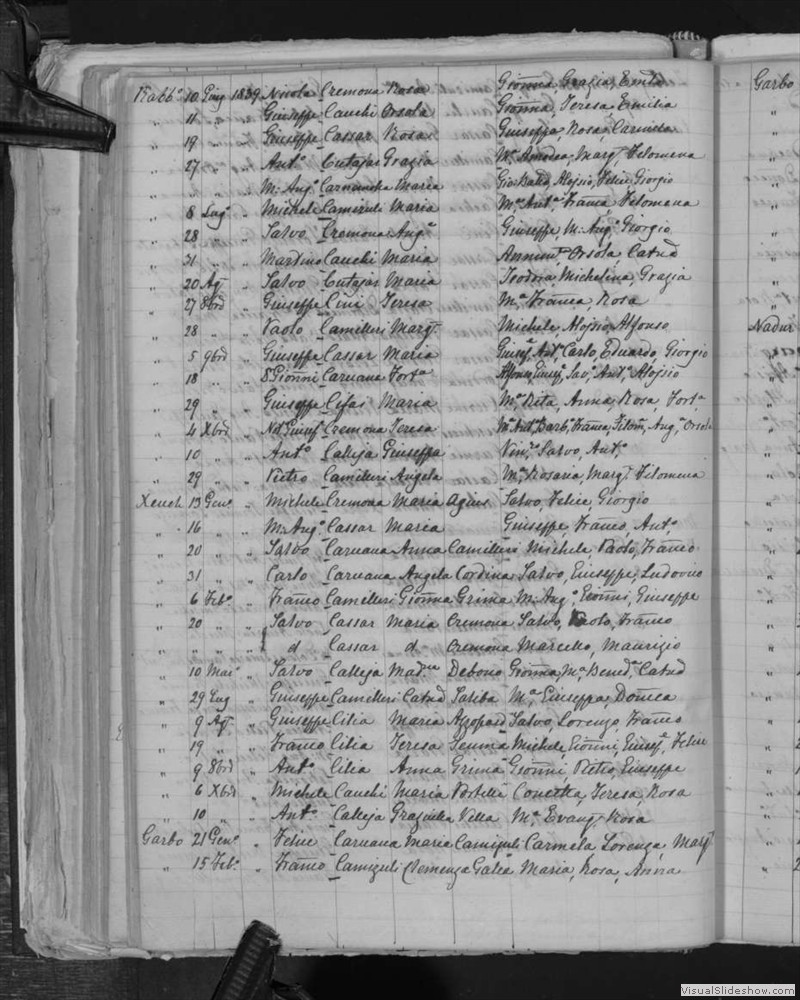 Rabb.o 10 Giug 1839 Nicola Cremona Rosa Gionna, Grazia, Emla
" 11 " " Giuseppe Cauchi Orsola Gionna, Teresa Emilia
" 19 " " Giuseppe Cassar Rosa Giuseppa Rosa Carmela
" 27 " " Ant.o Cutajar Grazia M.a Amodea, Marg.t Filomena
" " " " M. Ang.o Carnancha Maria Gio Batta, Alojsio, Felice Giorgio
" 8 Lug.o " Michele Camizuli Maria M.a Ant.a Franca, Filomena
" 28 " " Salvo Cremona Ang.a Giuseppe, M. Ang.o Giorgio
" 31 " " Martino Cauchi Maria Annun.ta Orsola, Catnd
" 20 Ag. " Salvo Cutajar Maria Teodora, Michelina, Grazia
" 27 8bre " Giuseppe Cini Teresa M.a Franca Rosa
" 28 " " Paolo Camilleri Marg.t Michele, Alojsio, Alfonso
" 5 9bre " Giuseppe Cassar Maria Giusep.e Ant.o Carlo, Eduardo, Giorgio
" 18 " " Gionni Caruana Fort.a Alfonso, Giusep.e Salv.o Ant.o Alojsio
" 29 " " Giuseppe Cefai Maria M.a Rita, Anna, Rosa, Fort.a
" 4 Xbre " Not Giusep.e Cremona Teresa M. Ant.a Barb.a Franca, Filom.a Ang.a Orsola
" 10 " " Ant.o Calleja Giuseppa Vin.zo Salvo, Ant.o
" 29 " " Pietro Camilleri Angela M.a Rosaria, Marg.t Filomena
Xeuch. 13 Gen.o " Michele Cremona Maria Agius Salvo, Felice, Giorgio
" 16 " " M. Ang.o Cassar Maria Giuseppe, Franco, Ant.o
" 20 " " Salvo Caruana Anna Camilleri Michele, Paolo, Franco
" 31 " " Carlo Caruana Angela Cordina Salvo, Giuseppe, Ludovico
" 6 Feb.o " Franco Camilleri Gionna Grima M. Ang.o, Gionni, Giuseppe
" 20 " " Salvo Cassar Maria Cremona Salvo, Paolo, Franco
" " " " d Cassar d Cremona Marcello, Maurizio
" 10 Mar. " Salvo Calleja Mad.na Debono Gionna, M.a Bened.a Catnd
" 29 Lug " Giuseppe Camilleri Catnd Saliba M.a Giuseppa, Domca
" 9 Ag.t " Giuseppe Cilia Maria Azzopar.d Salvo, Lorenzo, Franco
" 19 " " Franco Cilia Teresa Xeuma Michele, Gionni, Giusep.e, Felice
" 9 8bre " Ant.o Cilia Anna Grima Gionni, Pietro, Giuseppe
" 6 Xbre " Michele Cauchi Maria Portelli Concetta, Teresa, Rosa
" 10 " " Ant.o Calleja Graziulla Vella M.a Evang.ta Rosa
Garbo 21 Gen.o " Felice Caruana Maria Camizuli Carmela Lorenza, Marg.t
" 15 Feb.o " Franco Camizuli Clemenza Galea Maria, Rosa, Anna
Garbo
Nadur
VisualSlideshow.com